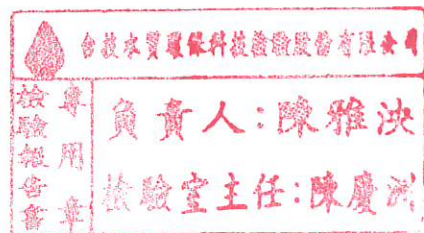 台技水質環保科技檢驗股份有限公司
檢驗報告書
專用章
負責人:陳雅泱
檢驗室主任:陳慶洲